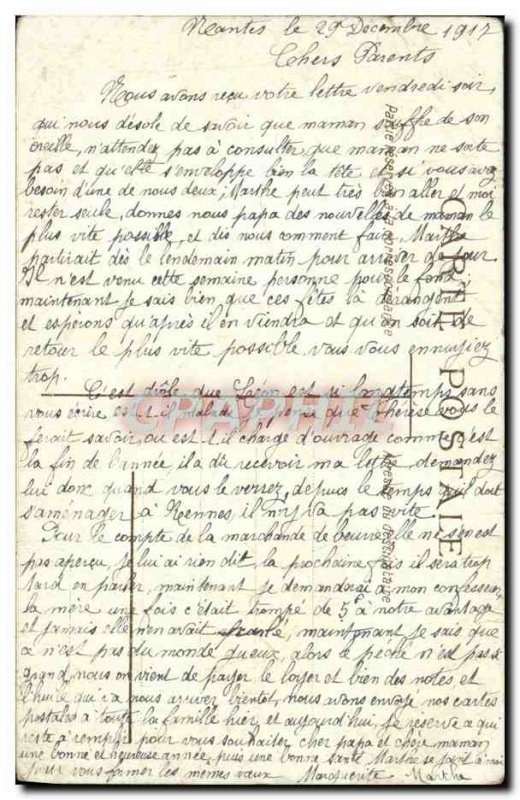 Nantes le 29 Décembre 1917
Chers Parents
Nous avons reçu votre lettre vendredi soir,
qui nous désole de savoir que maman souffre de son
oreille, n'attendez pas à consulter, que maman ne sorte
pas et qu'elle s'enveloppe bien la tête et si vous avez
besoin d'une de nous deux; Marthe peut très bien aller et moi
rester seule, donnes nous papa des nouvelles de maman le
plus vite possible, et dis nous comment faire Marthe
partirait dès le lendemain matin pour arriver de jour
Il n'est venu cette semaine personne pour le
maintenant je sais bien que ces fêtes la dérangent
et espérons qu'après il en viendra et qu'on soit de
retour le plus vite possible vous vous ennuyiez
trop.
C'est drôle que est si longtemps sans
vous écrire est-il malade je pense que Thérèse vous le
ferait savoir, ou est-il chargé d'ouvrage comme c'est
la fin de l'année, il a dû recevoir ma lettre, demandez
lui donc quand vous le verrez, depuis le temps qu'il doit
s'aménager à Rennes, il n'y va pas vite
Pour le compte de la marchande de beurre elle ne s'en est
pas aperçu, je lui ai rien dit la prochaine fois il sera trop
tard en parler, maintenant je demanderai à mon confesseur
la mère une fois c'était trompé de 5 à notre avantage
et jamais elle n'en avait parlé, maintenant je sais que
ce n'est pas du monde gueux, alors le péché n'est pas si
grand, nous on vient de payer le loyer et bien des notes et
l'huile qui va nous arriver bientôt, nous avons envoyé nos cartes
postales à toute la famille hier et aujourd'hui, je réserve ce qui
reste à remplir pour vous souhaiter cher papa et chère maman
une bonne et heureuse année, puis une bonne santé Marthe se joint à moi
pour vous former les mêmes vœux Marguerite Marthe
CARTE POSTALE
Partie réservée à la correspondance
Adresse du destinataire